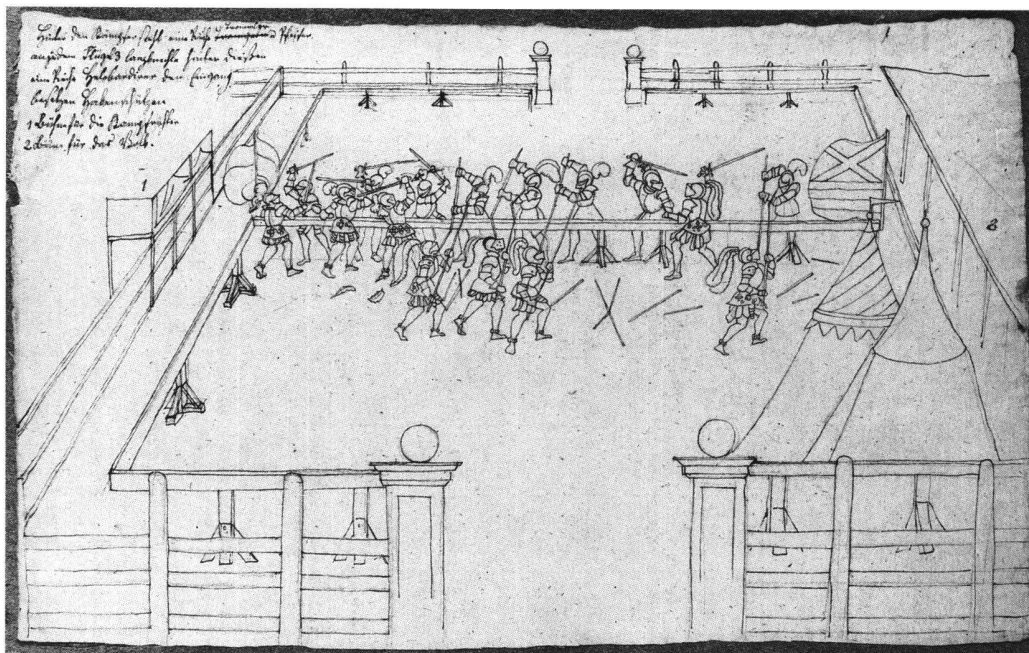 Hinter den Kämpfer steht eine Reihe Trommler Pfeifer
an jedem Flügel 3 Landknechte hinter diesen
eine Reihe Helebardirer den Eingang
besetzen Hakenschützen
1 Bühne für die Kampfrichter
2 für das Volk.
1
1